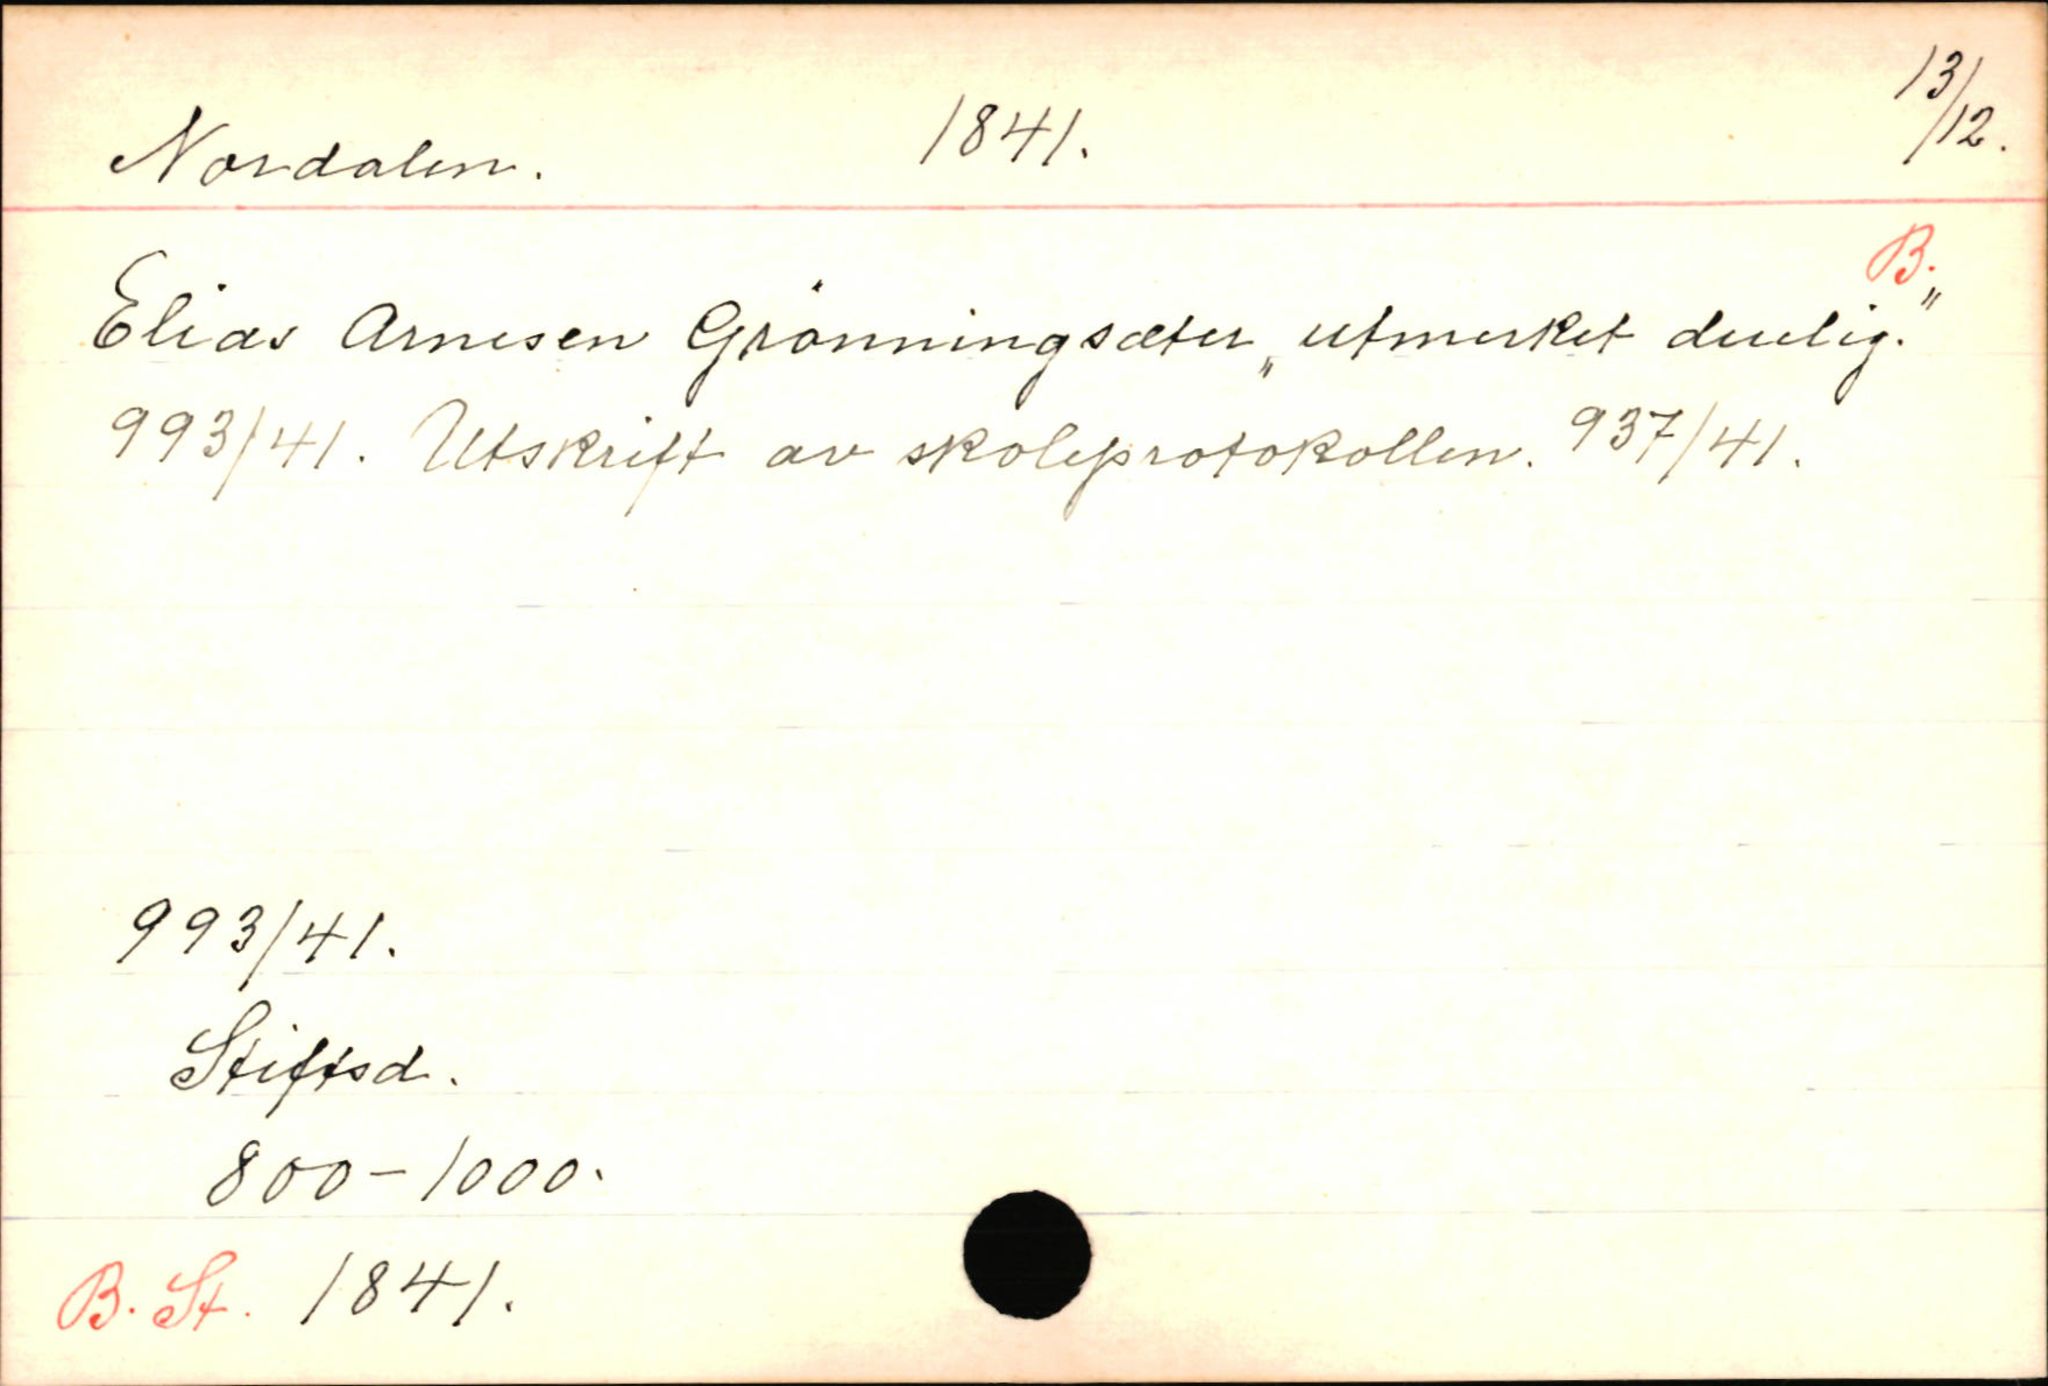 Nordalen. 1841. 13/12.
B.
Elias Arnesen Grönningsæter „utmerket duelig.“
993/41. Utskrift av skoleprotokollen. 937/41.
993/41.
Stiftsd.
800-1000.
B. St. 1841.